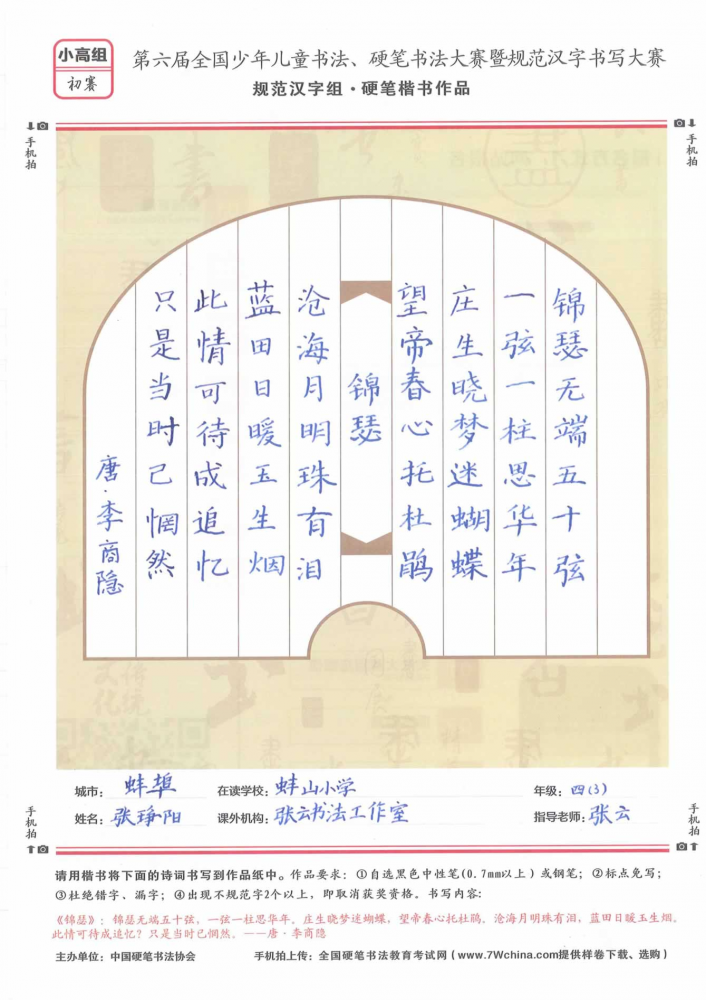 小高组
初赛
第六届全国少年儿童书法、硬笔书法大赛暨规范汉字书写大赛
规范汉字组·硬笔楷书作品
手机拍
手机拍
锦瑟无端五十弦
一弦一柱思华年
庄生晓梦迷蝴蝶
望帝春心托杜鹃
锦瑟
沧海月明珠有泪
蓝田日暖玉生烟
此情可待成追忆
只是当时已惘然
唐·李商隐
城市：蚌埠 在读学校：蚌山小学 年级：四(3)
姓名：张琤阳 课外机构：张云书法工作室 指导老师：张云
手机拍
手机拍
请用楷书将下面的诗词书写到作品纸中。作品要求：①自选黑色中性笔(0.7mm以上)或钢笔；②标点免写；
③杜绝错字、漏字；④出现不规范字2个以上，即取消获奖资格。书写内容：
《锦瑟》：锦瑟无端五十弦，一弦一柱思华年。庄生晓梦迷蝴蝶，望帝春心托杜鹃。沧海月明珠有泪，蓝田日暖玉生烟。
此情可待成追忆？只是当时已惘然。——唐·李商隐
主办单位：中国硬笔书法协会 手机拍上传：全国硬笔书法教育考试网（www.7Wchina.com提供样卷下载、选购）